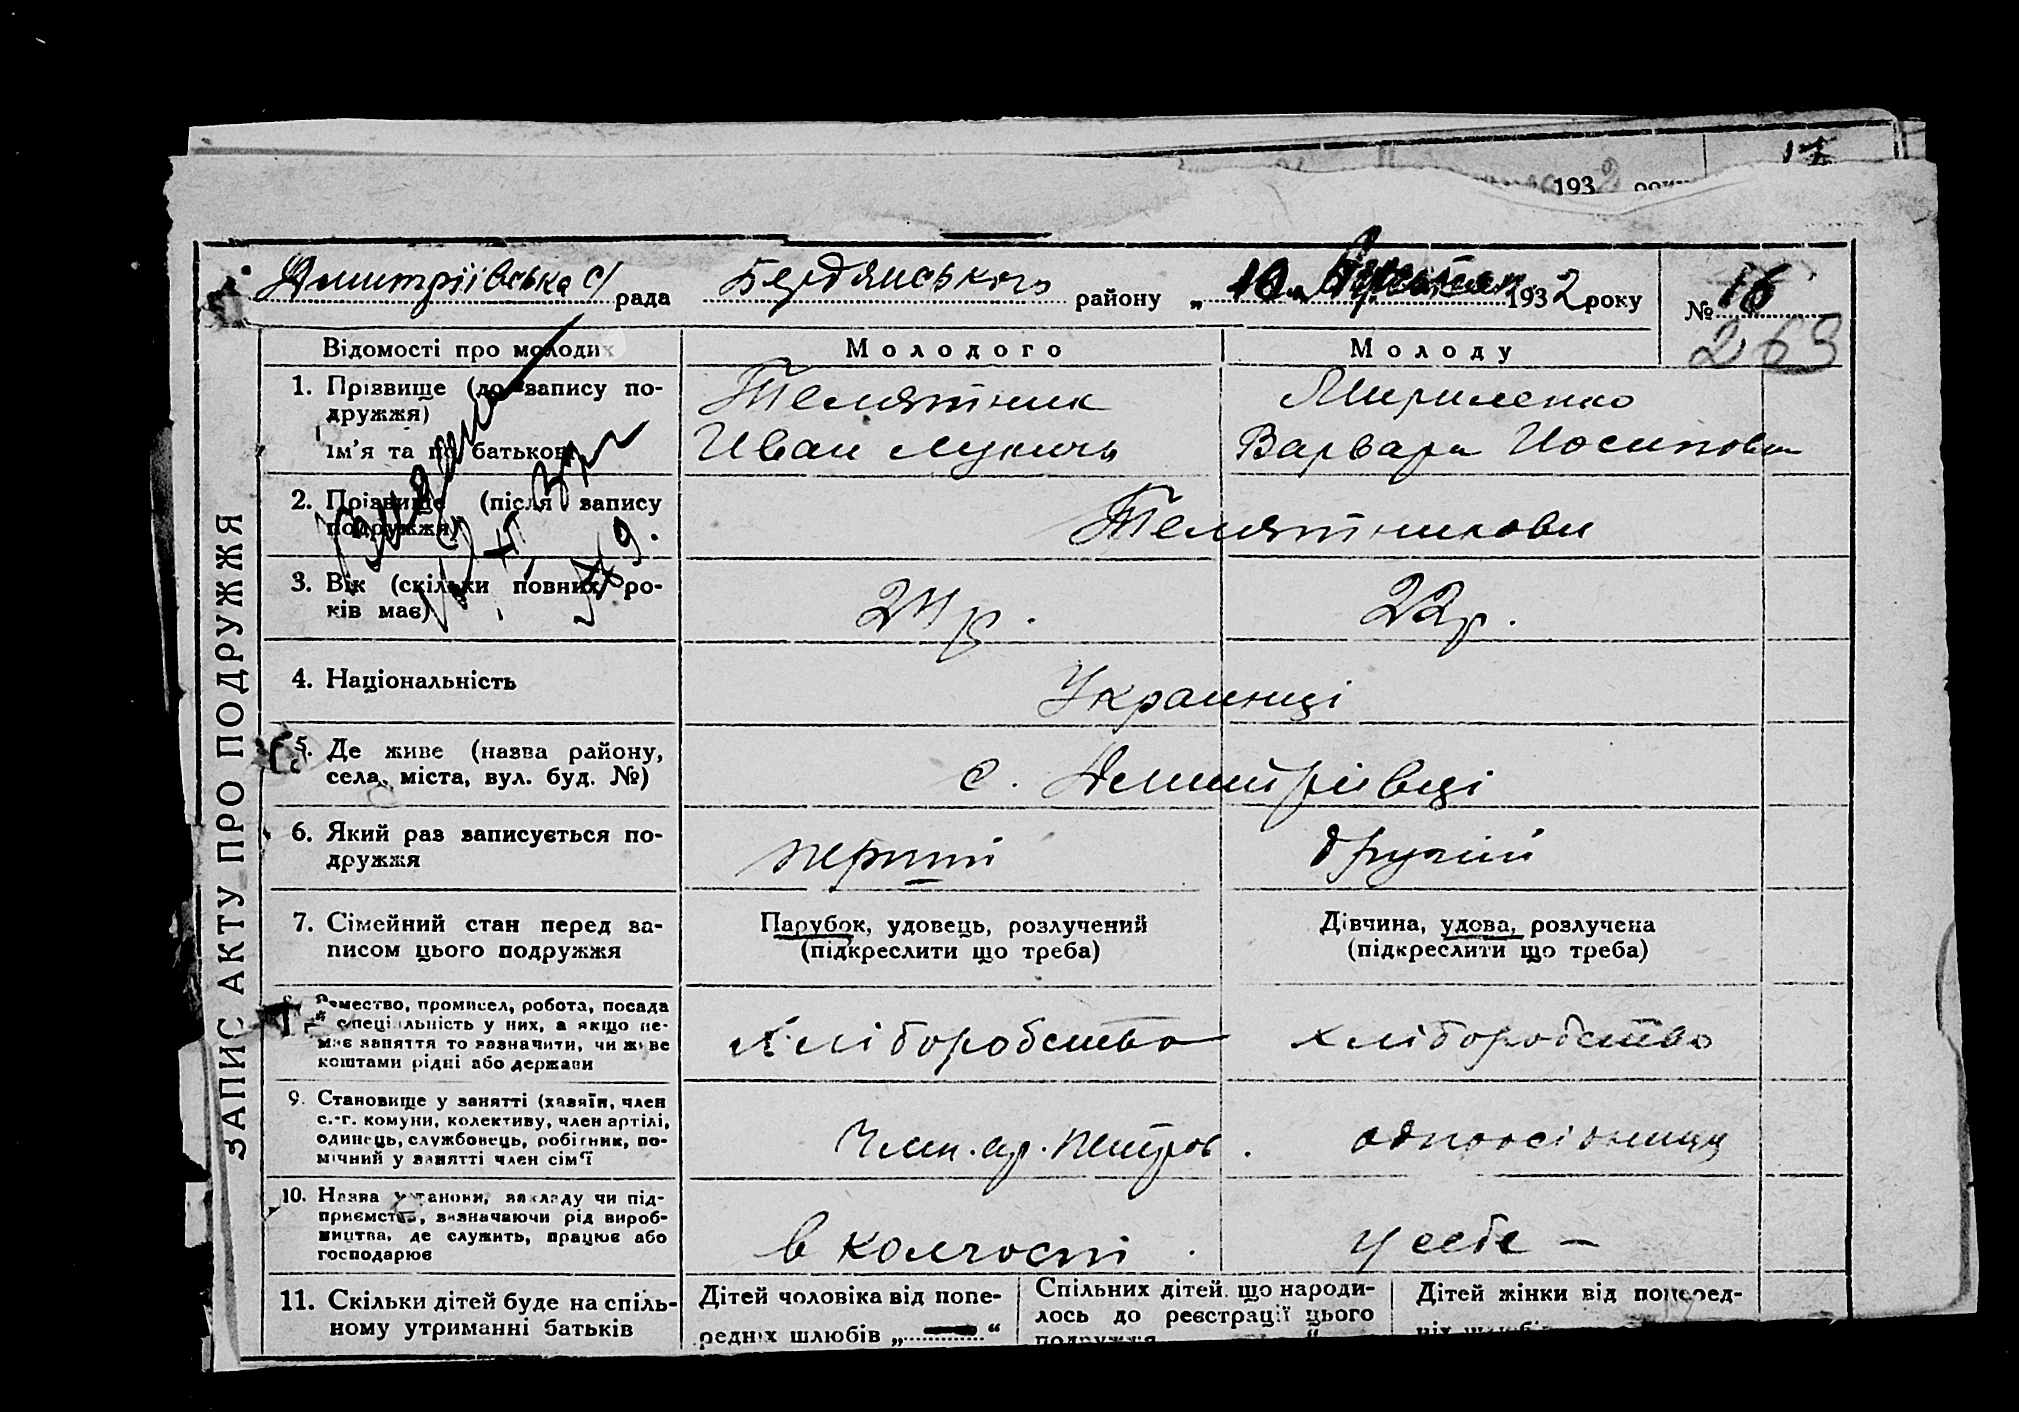 17
193 2 року
Дмитріївська с/рада Бердянського району „10“ 1932 року № 16
263
ЗАПИС АКТУ ПРО ПОДРУЖЖЯ
Відомості про молодих Молодого Молоду
1. Прізвище (до запису по- Телятник Мириленко
дружжя)
ім’я та по батькові Иван Лукичь Варвара Иосиповна
2. Прізвище (після запису Телятникови
подружжя)
3. Вік (скільки повних ро- 24 р. 22 р.
ків має)
4. Національність Украинці
5. Де живе (назва району, с. Дмитріівці
села, міста, вул. буд. №)
6. Який раз записується по- перший другий
дружжя
7. Сімейний стан перед за- Парубок, удовець, розлучений Дівчина, удова, розлучена
писом цього подружжя (підкреслити що треба) (підкреслити що треба)
8. Ремество, промисел, робота, посада
й спеціяльність у них, а якщо не- Хліборобство хліборобство
має заняття то зазначити, чи живе
коштами рідні або держави
9. Становище у занятті (хазяїн, член
с.-г. комуни, колективу, член артілі, Член. ар. Петров. одноосібниця
одинець, службовець, робітник, по-
мічний у занятті член сім’ї
10. Назва установи, закладу чи під-
приємства, визначаючи рід вироб- в колгоспі у себе –
ництва, де служить, працює або
господарює
11. Скільки дітей буде на спіль- Дітей чоловіка від попе- Спільних дітей, що народи- Дітей жінки від поперед-
ному утриманні батьків редніх шлюбів „ — “ лось до реєстрації цього ніх шлюбів
подружжя “